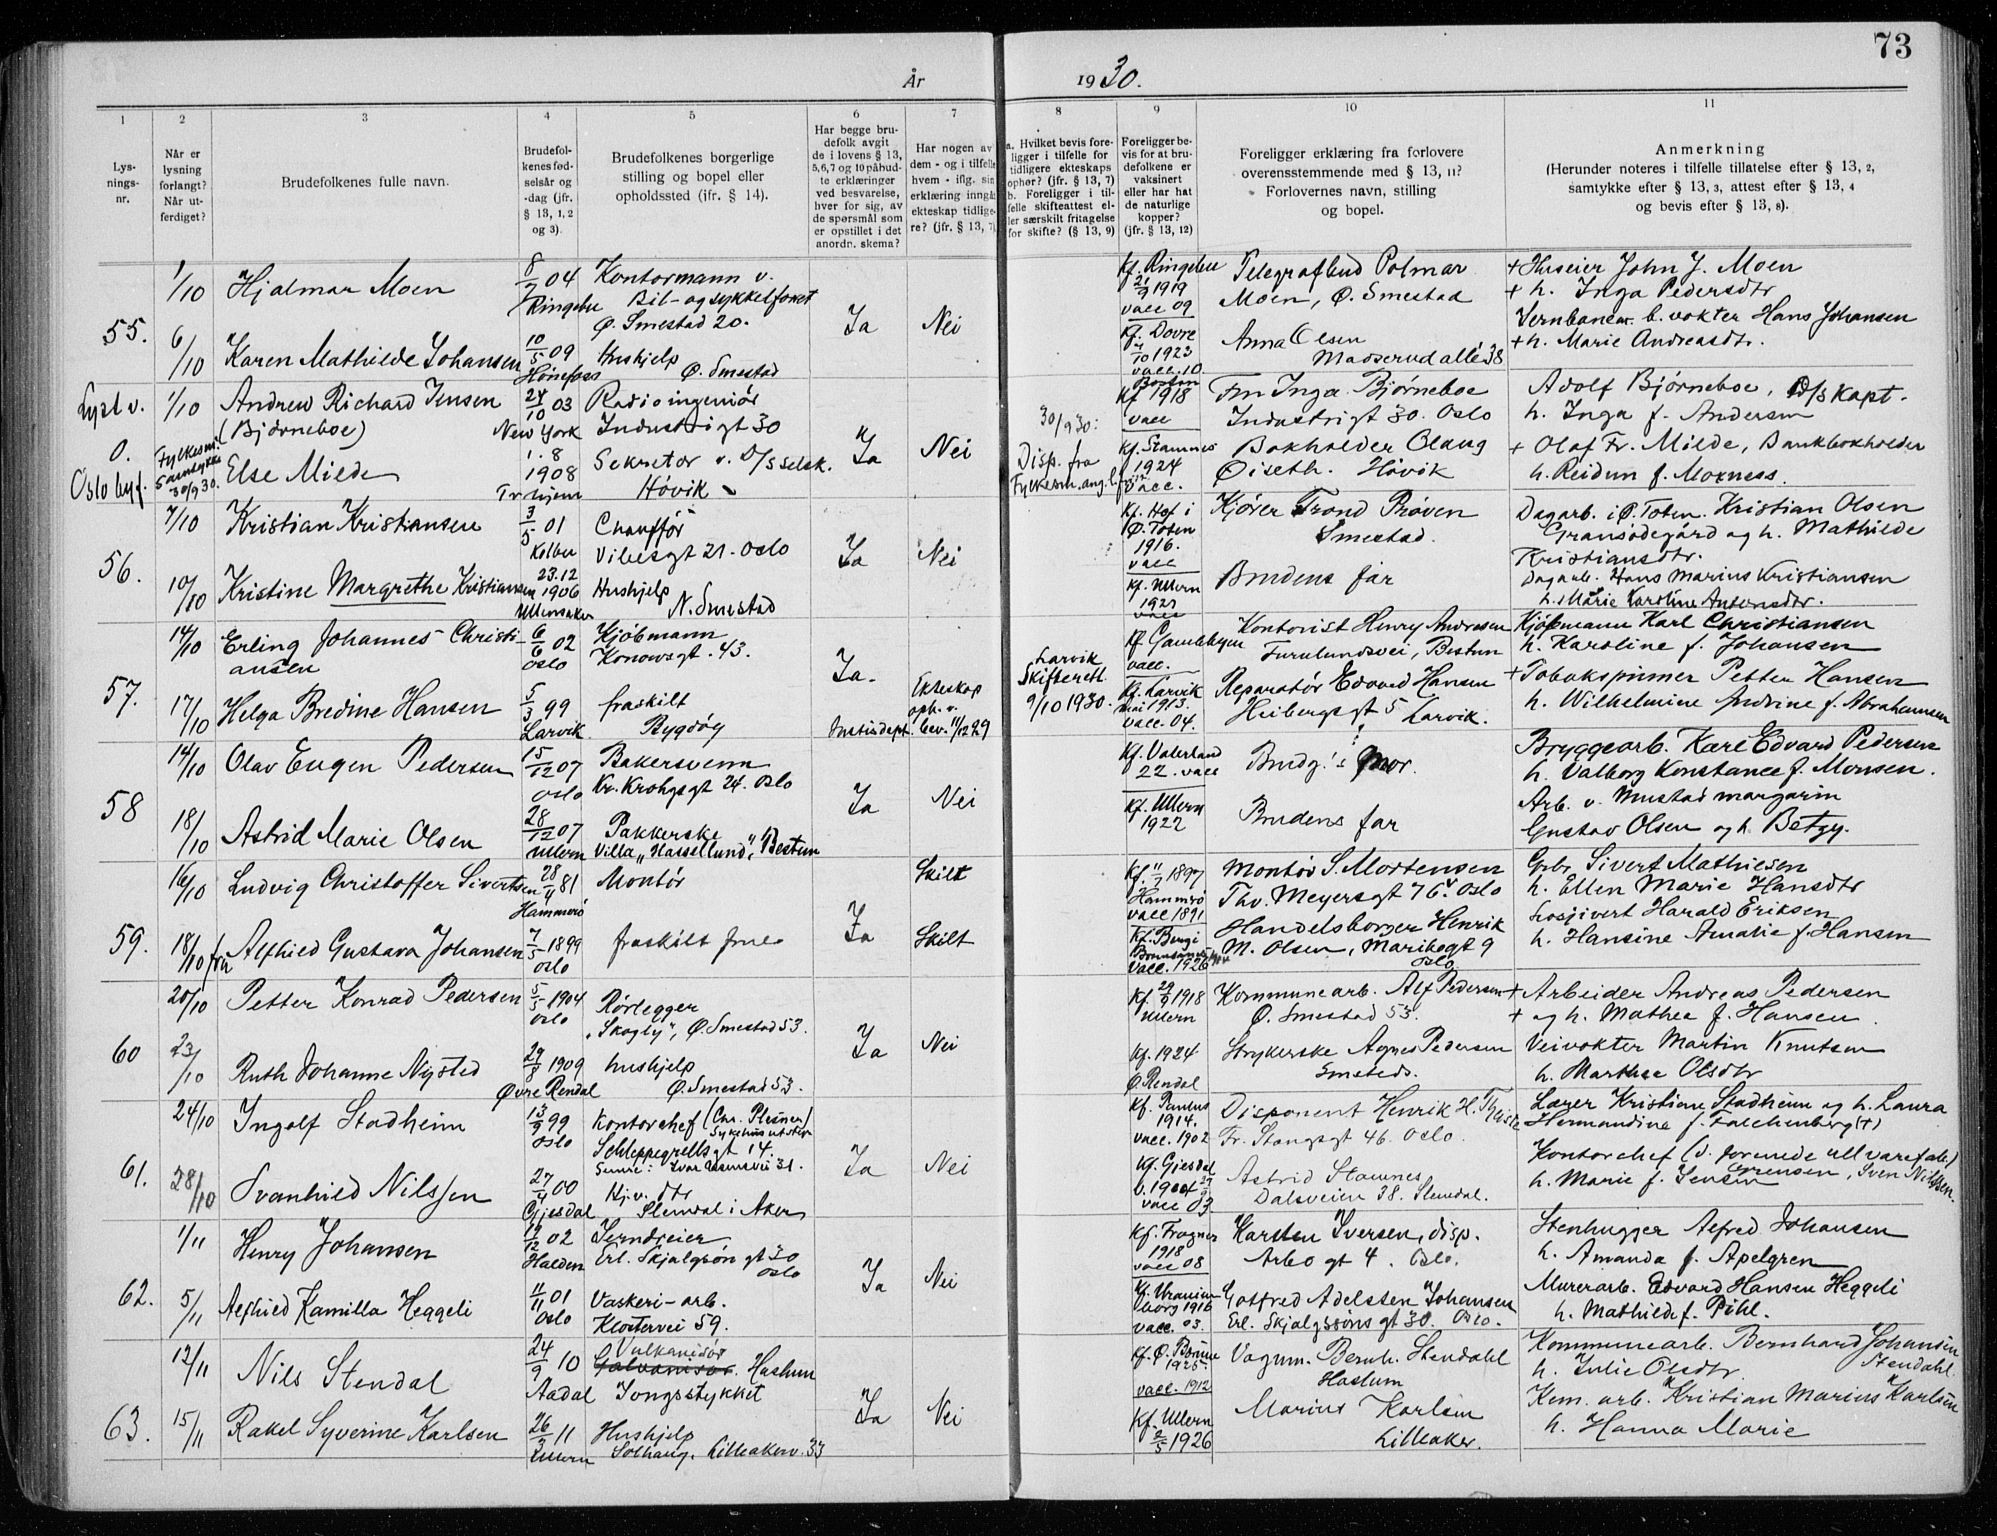 73
År 1930.
1 2 3 4 5 6 7 8 9 10 11
Lys-
nings-
nr.
Når er
lysning
forlangt?
Når ut-
ferdiget?
Brudefolkenes fulle navn.
Brudefol-
kenes fød-
selsår og
-dag (jfr.
§ 13, 1, 2
og 3).
Brudefolkenes borgerlige
stilling og bopel eller
opholdssted (jfr. § 14).
Har begge bru-
defolk avgit
de i lovens § 13,
5,6,7 og 10 påbud-
te erklæringer
ved besvarelse,
hver for sig, av
de spørsmål som
er opstillet i det
anordn. skema?
Har nogen av
dem - og i tilfelle
hvem - iflg. sin
erklæring inngåt
ekteskap tidlige-
re? (jfr. § 13, 7)
a. Hvilket bevis fore-
ligger i tilfelle for
tidligere ekteskaps
ophør? (jfr. § 13, 7)
b. Foreligger i til-
felle skifteattest el-
ler særskilt fritagelse
for skifte? (§ 13, 9)
Foreligger be-
vis for at bru-
defolkene er
vaksinert
eller har hat
de naturlige
kopper?
(jfr. § 13, 12)
Foreligger erklæring fra forlovere
overensstemmende med § 13, 11?
Forlovernes navn, stilling
og bopel.
Anmerkning
(Herunder noteres i tilfelle tillatelse efter § 13, 2,
samtykke efter § 13, 3, attest efter § 13, 4
og bevis efter § 13, 8).
55.
1/10 Hjalmar Moen 8/7 04 Ringebu
Kontormann v.
Bil- og sykkelforret
Ø. Smestad 20.
Ja Nei
Kf. Ringebu
21/9 1919
vacc 09
Telegrafbud Polmar
Moen, Ø. Smestad
+ Huseier John J. Moen
+ h. Inga Pedersdtr
6/10 Karen Mathilde Johansen 10/5 09 Hønefoss
Hushjelp
Ø. Smestad
Kf. Dovre
7/10 1923
vacc. 10.
Anna Olsen
Madserud allé 38
Jernbanear. b. vokter Hans Johansen
+ h. Marie Andreasdtr.
Lyst v.
O.
Oslo byf.
1/10 Andrew Richard Jensen
(Bjørneboe)
24/10 03
New York
Radioingeniør
Industrigt 30
Ja Nei
30/9 30:
Disp. fra
Fylkesm. ang.
Boston
Kf 1918
vacc
Frn Inga Bjørneboe
Industrigt 30. Oslo
Adolf Bjørneboe, D/S Kapt.
h. Inga f. Andersen
Fylkesm.
Samtykke
30/9 30.
Else Milde
1.8
1908
Tr.hjem
Sekretær v. D/S selsk.
Høvik
Kf. Stamnes
1924
Vacc.
Bokholder Olaug
Øiseth. Høvik
+ Olaf Fr. Milde, Bankbokholder
h. Reidun f. Moxness.
56.
7/10 Kristian Kristiansen 3/5 01 Kolbu
Chauffør
Vibesgt 21. Oslo
Ja Nei
Kf. Hof i
Ø. Toten
1916.
vacc
Kjører Trond Prøven
Smestad.
Dagarb. i Ø. Toten. Kristian Olsen
Gransødegård og h. Mathilde
Kristiansdtr.
10/10 Kristine Margrethe Kristiansen 23.12 1906 Ullensaker
Hushjelp
N. Smestad
Kf. Ullern
1921
vacc
Brudens far
Dagarb. Hans Marius Kristiansen
h. Marie Karoline Antonsdtr.
57.
14/10 Erling Johannes Christi-
ansen
6/6 02
Oslo
Kjøbmann
Konowsgt. 43.
Ja.
Kf. Gamlebyen
vacc.
Kontorist Henry Andresen
Furulundsvei, Bestun
Kjøpmann Karl Christiansen
h. Karoline f. Johansen
17/10 Helga Bredine Hansen 5/3 99 Larvik
fraskilt
Bygdøy
Ekteskap
oph. v.
Justisdept. bev. 11/12 29
Larvik
Skifterett.
9/10 1930.
Kf. Larvik
mai 1913.
vacc. 04.
Reparatør Edvard Hansen
Heibergsgt 5 Larvik.
+ Tobakspinner Petter Hansen
h. Wilhelmine Andrine f. Abrahamsen
58
14/10 Olav Eugen Pedersen 15/12 07 Oslo
Bakersvenn
Kr. Krohgsgt 24. Oslo
Ja Nei
Kf. Vaterland
22. vacc
Brudg.'s mor.
Bryggearb. Karl Edvard Pedersen
h. Valborg Konstance f. Monsen.
18/10 Astrid Marie Olsen 28/12 07 Ullern
Pakkerske
Villa "Hassellund", Bestun
Kf. Ullern
1922
Brudens far
Arb. v. Mustad margarin
Gustav Olsen og h. Betzy.
59.
16/10 Ludvig Christoffer Sivertsen 28/4 81 Hammerø
Montør
Ja Skilt
Kf. 11/7 1897
Hammerø
vacc 1891
Montør S. Mortensen
Thv. Meyersgt 76 V. Oslo
Gbr. Sivert Mathiesen
h. Ellen Marie Hansdtr
18/10 fra Alfhied Gustava Johansen 7/5 1899 Oslo
fraskilt frue
Skilt
Vacc. 1926
Handelsborger Henrik
M. Olsen, Maribogt 9
Oslo
Losjivert Harald Eriksen
h. Hansine Amalie f. Hansen
60
20/10 Petter Konrad Pedersen 5/5 1904 Oslo
Rørlegger
"Skogly", Ø. Smestad 53.
Ja Nei
Kf. 29/9 1918
Ullern
Kommunearb. Alf Pedersen
Ø. Smestad 53.
+ Arbeider Andreas Pedersen
+ og h. Mathea f. Hansen.
23/10 Ruth Johanne Nysted 29/8 1909 Øvre Rendal
hushjelp
Ø. Smestad 53.
Kf. 1924
Ø. Rendal
Strykerske Agnes Pedersen
Smestad.
Veivokter Martin Knutsen
h. Marthee Olsdtr
61.
24/10 Ingolf Stadheim 13/9 99 Oslo
Kontorchef (Chr. Plesner)
Sykehusutstyr
Schleppegrellsgt 14.
Senere: Ivar Aasensvei 31.
Ja Nei
Kf. Paulus
1914.
vacc. 1902
Disponent Henrik H. Thiste
Fr. Stangsgt 46. Oslo.
Lærer Kristian Stadheim og h. Laura
Hermandine f. Falchenberg (+)
28/10 Svanhild Nilssen 27/4 00 Gjesdal
Hj.v. dtr
Slemdal i Aker
Kf. Gjesdal
vacc 03
Astrid Stamnes
Dalsveien 38. Slemdal.
Kontorchef (d. forenede ullvarefabr.)
h. Marie f. Jensen Sørensen, Sven Nilssen.
62.
1/11 Henry Johansen 12/12 02 Halden
Jerndreier
Erl. Skjalgsøns gt 30
Oslo
Ja Nei
Kf. Frogner
1918
vacc 08
Karsten Iversen, disp.
Arbo gt 4. Oslo.
Stenhugger Alfred Johansen
h. Amanda f. Apelgren
5/11 Alfhied Kamilla Heggeli 1/11 01 Oslo
Vaskeri-arb.
Klostervei 59.
Kf. Uranien
borg 1916
vacc. 03.
Gotfred Adelsten Johansen
Erl. Skjalgssøns gt 30. Oslo.
Murerarb. Edvard Hansen Heggeli
h. Mathilde f. Pihl.
63.
12/11 Nils Stendal 24/9 10 Aadal
Vulkanisør
Galvanisør. Haslum
Jongsstykket
Ja Nei
Kf. Ø. Bærum
1925.
vacc. 1912
Vognm. Bernh. Stendahl
Haslum
Kommunearb. Bernhard Johansen
Stendahl
h. Julie Olsdtr.
15/11 Rakel Syverine Karlsen 26/3 11 Ullern
Hushjelp
Solhaug, Lilleakerv. 33
Kf. Ullern
2/5 1926
Marius Karlsen
Lilleaker.
Kom. arb. Kristian Marius Karlsen
h. Hanna Marie